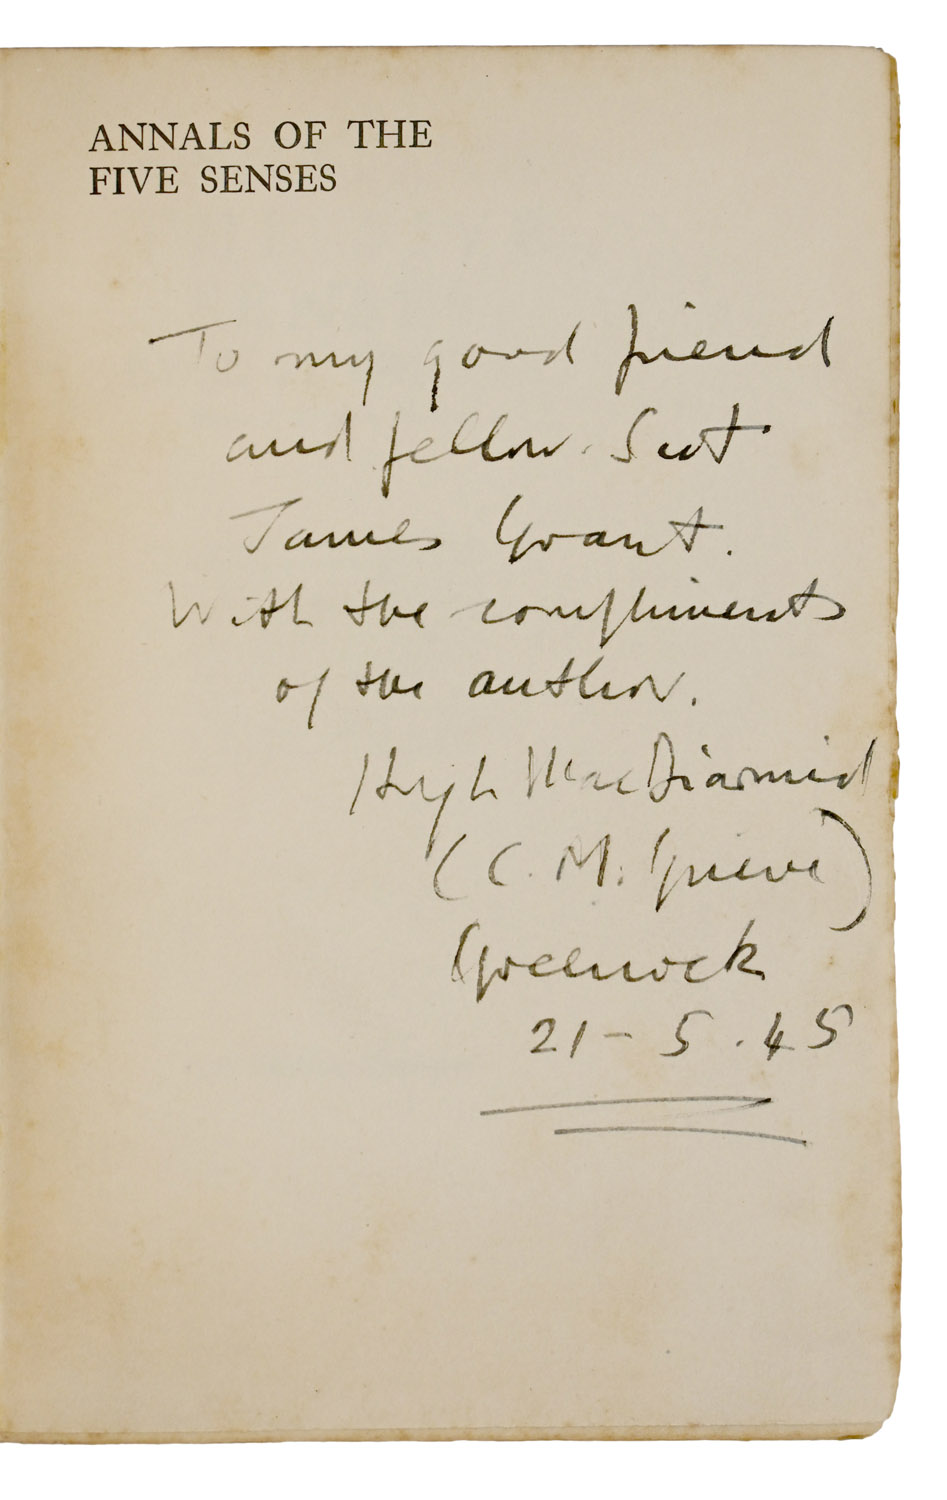 ANNALS OF THE
FIVE SENSES
To my good friend
and fellow Scot
James Grant.
With the compliments
of the author.
Hugh MacDiarmid
(C. M. Grieve)
Greenock
21 - 5 . 45